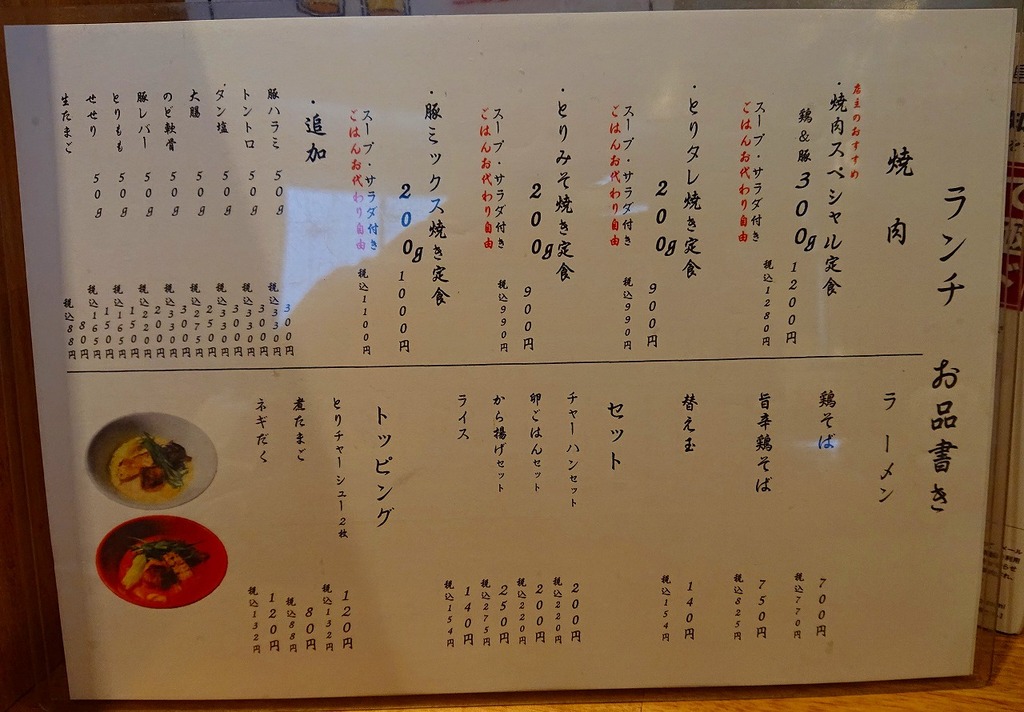 ランチ お品書き
焼肉
店主のおすすめ
・焼肉スペシャル定食
鶏&豚300g 1200円
税込1280円
スープ・サラダ付き
ごはんお代わり自由
・とりタレ焼き定食
200g 900円
税込990円
スープ・サラダ付き
ごはんお代わり自由
・とりみそ焼き定食
200g 900円
税込990円
スープ・サラダ付き
ごはんお代わり自由
・豚ミックス焼き定食
200g 1000円
税込1100円
スープ・サラダ付き
ごはんお代わり自由
・追加
豚ハラミ 50g 300円
税込330円
トントロ 50g 300円
税込330円
・タン塩 50g 300円
税込330円
大腸 50g 250円
税込275円
のど軟骨 50g 300円
税込330円
豚レバー 50g 200円
税込220円
とりもも 50g 150円
税込165円
せせり 50g 150円
税込165円
生たまご 80円
税込88円
ラーメン
鶏そば 700円
税込770円
旨辛鶏そば 750円
税込825円
替え玉 140円
税込154円
セット
チャーハンセット 200円
税込220円
卵ごはんセット 200円
税込220円
から揚げセット 250円
税込275円
ライス 140円
税込154円
トッピング
とりチャーシュー2枚 120円
税込132円
煮たまご 80円
税込88円
ネギだく 120円
税込132円